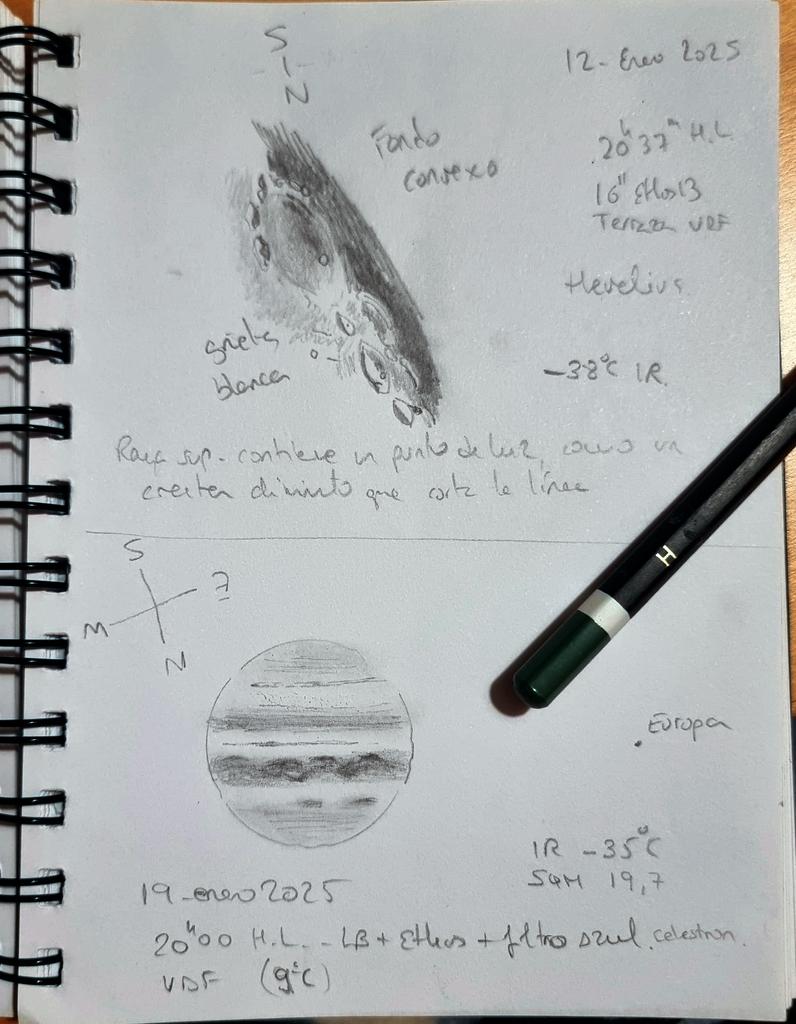 S
N
12 - Enero 2025
Fondo
convexo
20h 37m H.L
16" Ethos 13
Terraza VDF
Hevelius
grietas
blancas
-38°C IR
sup. contiene un punto de luz, como un
crater diminuto que corta la línea
H
S
F
M
N
Europa
IR -35°C
SQM 19,7
19-enero 2025
20h00 H.L. - LB + Ethos + filtro azul celestron.
VDF (9°C)